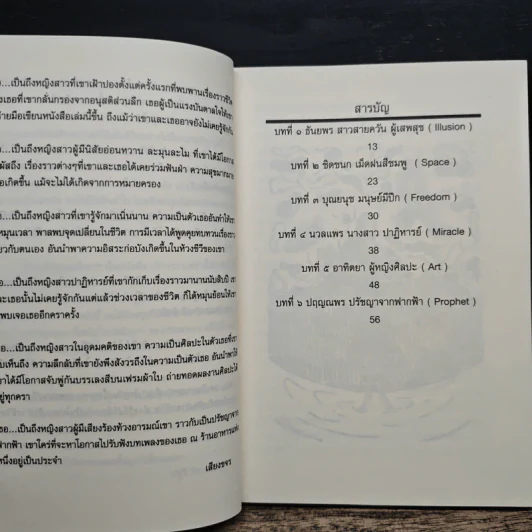 ...เป็นถึงหญิงสาวที่เขาเฝ้าปองตั้งแต่ครั้งแรกที่พบพานเรื่องราวชีวิต
งเธอที่เขากลั่นกรองจากอนุสติส่วนลึก เธอผู้เป็นแรงบันดาลใจให้เขา
ายมือเขียนหนังสือเล่มนี้ขึ้น ถึงแม้ว่าเขาและเธออาจยังไม่เคยรู้จักกัน
...เป็นถึงหญิงสาวผู้มีนิสัยอ่อนหวาน ละมุนละไม ที่เขาได้มีโอกาส
ผัสถึง เรื่องราวต่างๆที่เขาและเธอได้เคยร่วมฟันฝ่า ความสุขมากมาย
อเกิดขึ้น แม้จะไม่ได้เกิดจากการหมายครอง
...เป็นถึงหญิงสาวที่เขารู้จักมาเนิ่นนาน ความเป็นตัวเธออันทำให้เขา
หมุนเวลา พาสพบจุดเปลี่ยนในชีวิต การมีเวลาได้พูดคุยทบทวนเรื่องราว
ยวกับตนเอง อันนำพาความอิสระก่อบังเกิดขึ้นในห้วงชีวีของเขา
อ...เป็นถึงหญิงสาวปาฏิหารย์ที่เขากักเก็บเรื่องราวมานานนับสิบปี
ละเธอนั้นไม่เคยรู้จักกันแต่แล้วช่วงเวลาของชีวิต ก็ได้หมุนย้อนให้เขา
พบเจอเธออีกคราครั้ง
อ...เป็นถึงหญิงสาวในอุดมคติของเขา ความเป็นศิลปะในตัวเธอที่เขา
บเห็นถึง ความลึกลับที่เขายังพึงสังวรถึงในความเป็นตัวเธอ อันนำพาให้
ขาได้มีโอกาสจับพู่กันบรรเลงสีบนเฟรมผ้าใบ ถ่ายทอดผลงานศิลปะได้
ยู่ทุกครา
ธอ...เป็นถึงหญิงสาวผู้มีเสียงร้องห้วงอารมณ์เขา ราวกับเป็นปรัชญาจาก
ฟากฟ้า เขาใคร่ที่จะหาโอกาสไปรับฟังบทเพลงของเธอ ณ ร้านอาหารแห่ง
หนึ่งอยู่เป็นประจำ
เสียงขจร
สารบัญ
บทที่ ๑ ธันยพร สาวสายควัน ผู้เสพสุข ( Illusion )
13
บทที่ ๒ ชิดชนก เม็ดฝนสีชมพู ( Space )
23
บทที่ ๓ บุณยนุช มนุษย์มีปีก ( Freedom )
30
บทที่ ๔ นวลแพร นางสาว ปาฏิหารย์ ( Miracle )
38
บทที่ ๕ อาทิตยา ผู้หญิงศิลปะ ( Art )
48
บทที่ ๖ ปฤญณพร ปรัชญาจากฟากฟ้า ( Prophet )
56